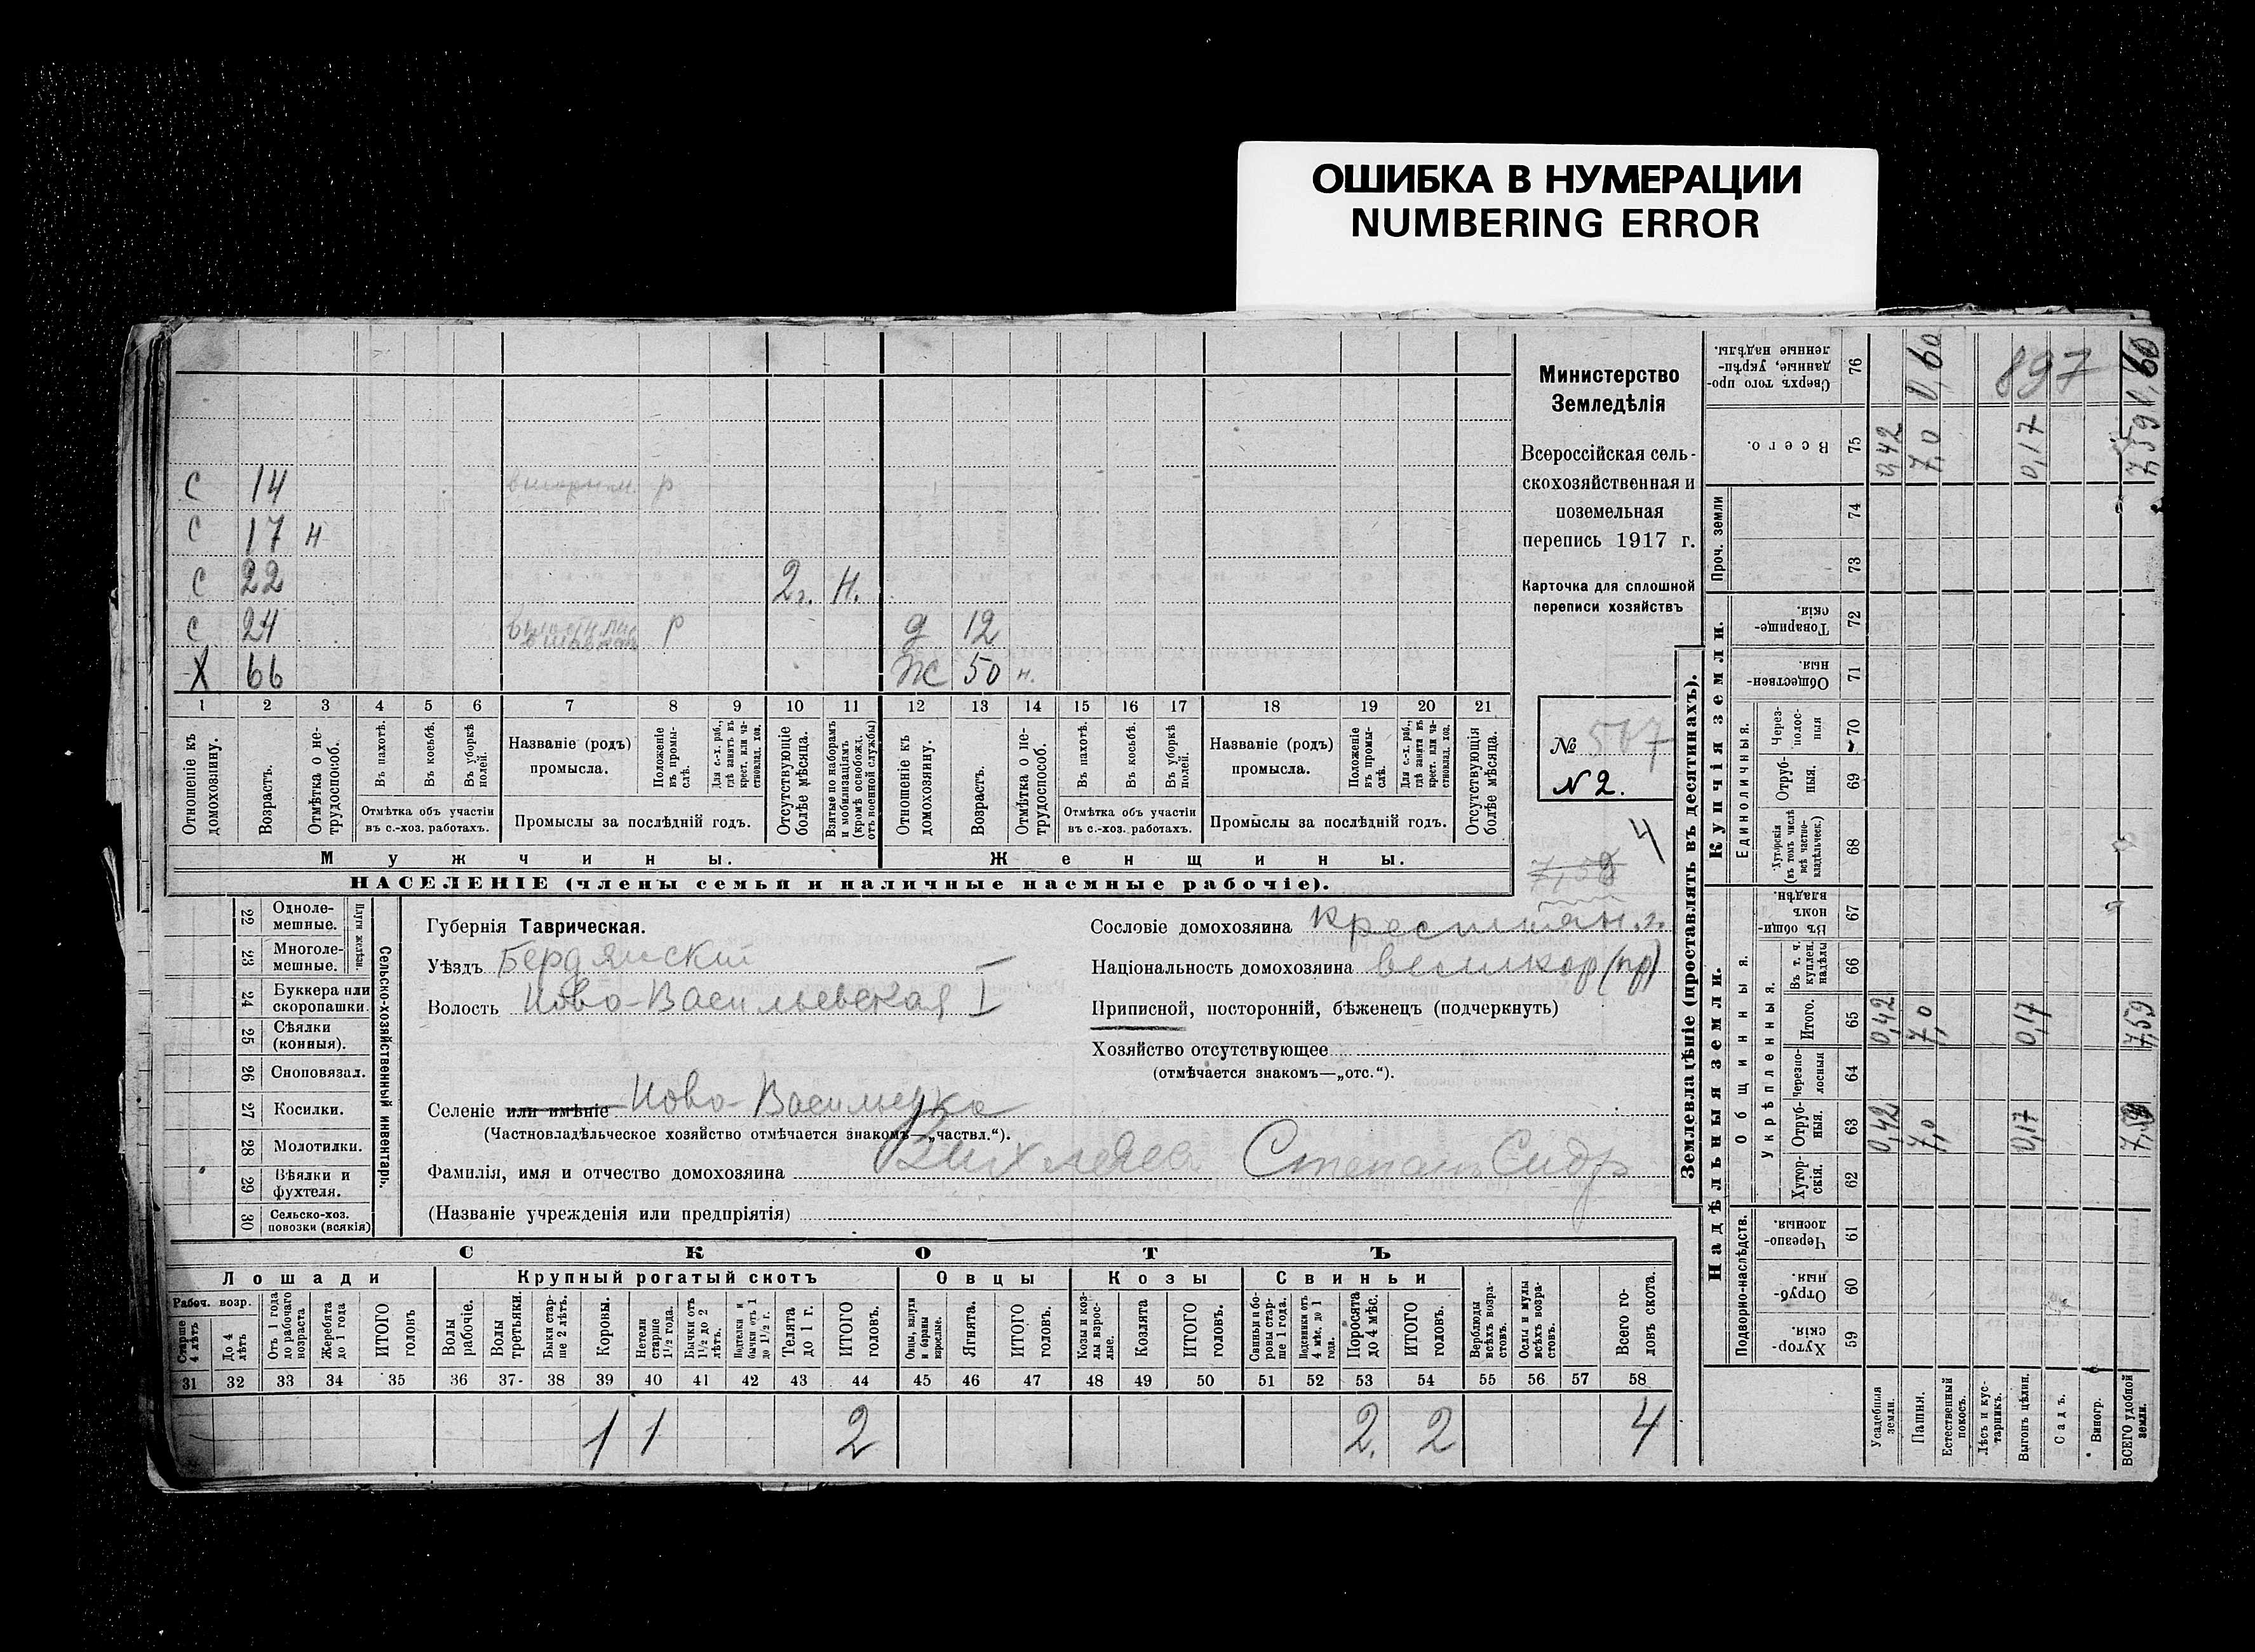 ОШИБКА В НУМЕРАЦИИ
NUMBERING ERROR
Министерство
Земледѣлія
Всероссійская сель-
скохозяйственная и
поземельная
перепись 1917 г.
Карточка для сплошной
переписи хозяйствъ
№ 507
N 2.
4
7,59
С 14 р
С 17 н
С 22 2г. Н.
С 24 р д 12
Х 66 Ж 50 н.
1 2 3 4 5 6 7 8 9 10 11 12 13 14 15 16 17 18 19 20 21
Отношеніе къ домохозяину.
Возрастъ.
Отмѣтка о не-трудоспособ.
Въ пахотѣ.
Въ косьбѣ.
Въ уборкѣ полей.
Отмѣтка объ участіи
въ с.-хоз. работахъ.
Названіе (родъ)
промысла.
Положеніе въ промы-слѣ.
Для с.-х. раб., гдѣ занятъ въ крест. или ча-стновлад. хоз.
Промыслы за послѣдній годъ.
Отсутствующіе болѣе мѣсяца.
Взятые по наборамъ и мобилизаціямъ (кромѣ освобожд. отъ военной службы)
Отношеніе къ домохозяину.
Возрастъ.
Отмѣтка о не-трудоспособ.
Въ пахотѣ.
Въ косьбѣ.
Въ уборкѣ полей.
Отмѣтка объ участіи
въ с.-хоз. работахъ.
Названіе (родъ)
промысла.
Положеніе въ промы-слѣ.
Для с.-х. раб., гдѣ занята въ крест. или ча-стновлад. хоз.
Промыслы за послѣдній годъ.
Отсутствующія болѣе мѣсяца.
Мужчины. Женщины.
НАСЕЛЕНІЕ (члены семьи и наличные наемные рабочіе).
Сельско-хозяйственный инвентарь.
Плуги желѣзн.
22 Одноле-мешные.
23 Многоле-мешные.
24 Буккера или скоропашки.
25 Сѣялки (конныя).
26 Сноповязал.
27 Косилки.
28 Молотилки.
29 Вѣялки и фухтеля.
30 Сельско-хоз. повозки (всякія)
Губернія Таврическая.
Уѣздъ Бердянскій
Волость Ново-Васильевская I
Селеніе или имѣніе Ново-Васильевка
(Частновладѣльческое хозяйство отмѣчается знакомъ—„частвл.“).
Фамилія, имя и отчество домохозяина Степанъ Сидр
(Названіе учрежденія или предпріятія)
Сословіе домохозяина крестьян.
Національность домохозяина великор (пр)
Приписной, посторонній, бѣженец (подчеркнуть)
Хозяйство отсутствующее
(отмѣчается знакомъ—„отс.“).
СКОТЪ
Лошади Крупный рогатый скотъ Овцы Козы Свиньи
Рабоч. возр.
Старше 4 лѣтъ
До 4 лѣтъ
Отъ 1 года до рабочаго возраста
Жеребята до 1 года
ИТОГО головъ
Волы рабочіе.
Волы третьяки.
Быки стар-ше 2 лѣтъ.
Коровы.
Нетели старше 1½ года.
Бычки отъ 1½ до 2 лѣтъ.
Подтелки и бычки отъ 1 до 1½ г.
Телята до 1 г.
ИТОГО головъ.
Овцы, валухи и бараны взрослые.
Ягнята.
ИТОГО головъ.
Козы и коз-лы взрос-лые.
Козлята
ИТОГО головъ.
Свиньи и бо-ровы стар-ше 1 года.
Подсвинки отъ 4 мѣс. до 1 года.
Поросята до 4 мѣс.
ИТОГО головъ.
Верблюды всѣхъ возра-стовъ.
Ослы и мулы всѣхъ возра-стовъ.
Всего го-ловъ скота.
31 32 33 34 35 36 37 38 39 40 41 42 43 44 45 46 47 48 49 50 51 52 53 54 55 56 57 58
1 1 2 2. 2 4
Землевладѣніе (проставлять въ десятинахъ).
Надѣльныя земли. Купчія земли. Проч. земли
Подворно-наслѣдств. Общинныя. Единоличныя.
Укрѣпленныя.
59 Хутор-скія.
60 Отруб-ныя.
61 Черезпо-лосныя.
62 Хутор-скія.
63 Отруб-ныя. 0,42 7,0 0,17 7,59
64 Черезпо-лосныя
65 Итого. 0,42 7,0 0,17 7,59
66 Въ т. ч. куплен. надѣлы
67 Въ общи-номъ владѣн.
68 Хуторскія (въ томъ числѣ всѣ частно-владѣльческ.)
69 Отруб-ныя.
70 Через-полос-ныя
71 Обществен-ныя.
72 Товарище-скія.
73
74
75 Всего. 0,42 7,0 0,17 7,59
76 Сверхъ того про-данные, укрѣп-ленные надѣлы. 1,60 1,60
897
Усадебныя земли.
Пашня.
Естественный покосъ.
Лѣсъ и кус-тарникъ.
Выгонъ цѣлин.
Садъ.
Виногр.
ВСЕГО удобной земли.